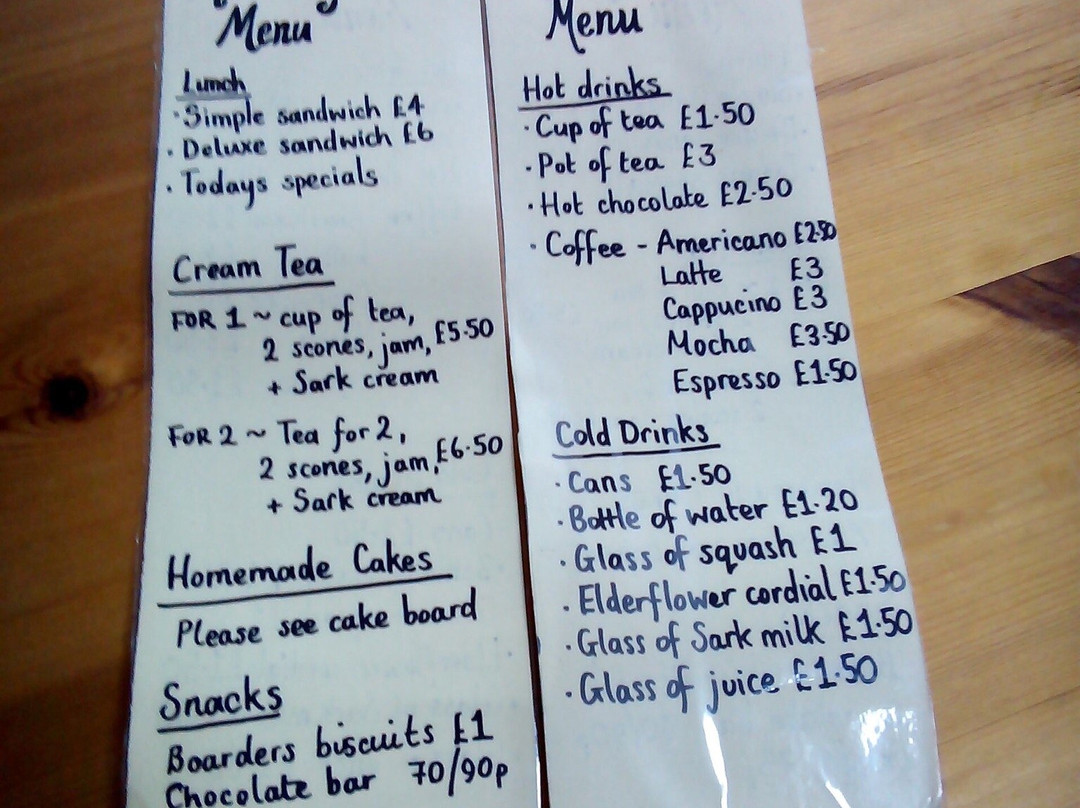 Menu
Lunch
· Simple sandwich £4
· Deluxe sandwich £6
· Todays specials
Cream Tea
FOR 1 ~ cup of tea,
2 scones, jam, £5·50
+ Sark cream
FOR 2 ~ Tea for 2,
2 scones, jam, £6·50
+ Sark cream
Homemade Cakes
Please see cake board
Snacks
Boarders biscuits £1
Chocolate bar 70/90p
Menu
Hot drinks
· Cup of tea £1·50
· Pot of tea £3
· Hot chocolate £2·50
· Coffee - Americano £2·50
Latte £3
Cappucino £3
Mocha £3·50
Espresso £1·50
Cold Drinks
· Cans £1·50
· Bottle of water £1·20
· Glass of squash £1
· Elderflower cordial £1·50
· Glass of Sark milk £1·50
· Glass of juice £1·50